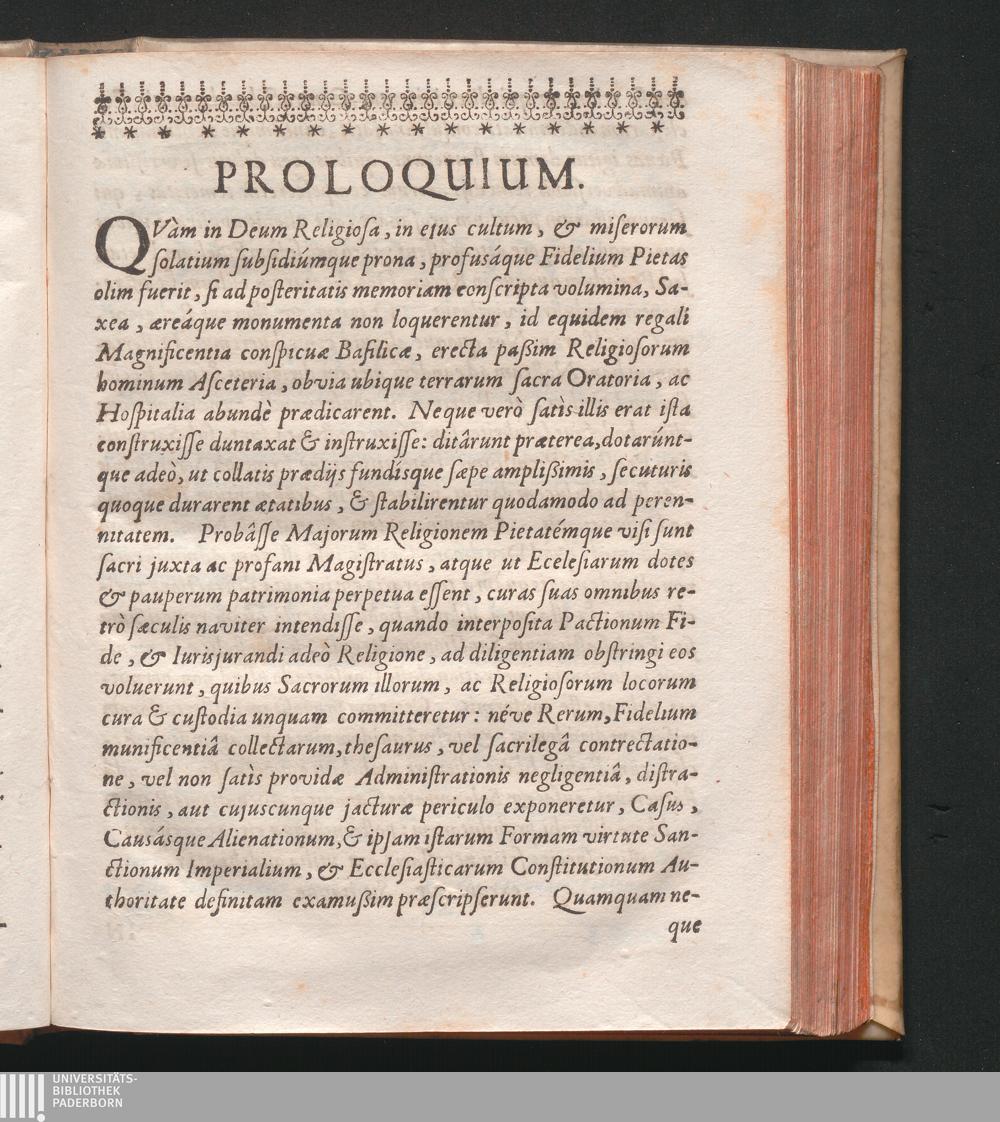 PROLOQUIUM.
QVàm in Deum Religiosa, in ejus cultum, & miserorum
solatium subsidiúmque prona, profusáque Fidelium Pietas
olim fuerit, si ad posteritatis memoriam conscripta volumina, Sa-
xea, æreáque monumenta non loquerentur, id equidem regali
Magnificentia conspicuæ Basilicæ, erecta paßim Religiosorum
hominum Asceteria, obvia ubique terrarum sacra Oratoria, ac
Hospitalia abundè prædicarent. Neque verò satìs illis erat ista
construxisse duntaxat & instruxisse: ditârunt præterea, dotarúnt-
que adeò, ut collatis prædijs fundísque sæpe amplißimis, secuturis
quoque durarent ætatibus, & stabilirentur quodamodo ad peren-
nitatem. Probâsse Majorum Religionem Pietatémque visi sunt
sacri juxta ac profani Magistratus, atque ut Ecelesiarum dotes
& pauperum patrimonia perpetua essent, curas suas omnibus re-
trò sæculis naviter intendisse, quando interposita Pactionum Fi-
de, & Iurisjurandi adeò Religione, ad diligentiam obstringi eos
voluerunt, quibus Sacrorum illorum, ac Religiosorum locorum
cura & custodia unquam committeretur: néve Rerum, Fidelium
munificentiâ collectarum, thesaurus, vel sacrilegâ contrectatio-
ne, vel non satìs providæ Administrationis negligentiâ, distra-
ctionis, aut cujuscunque jacturæ periculo exponeretur, Casus,
Causásque Alienationum, & ipsam istarum Formam virtute San-
ctionum Imperialium, & Ecclesiasticarum Constitutionum Au-
thoritate definitam examußim præscripserunt. Quamquam ne-
que
UNIVERSITÄTS-
BIBLIOTHEK
PADERBORN